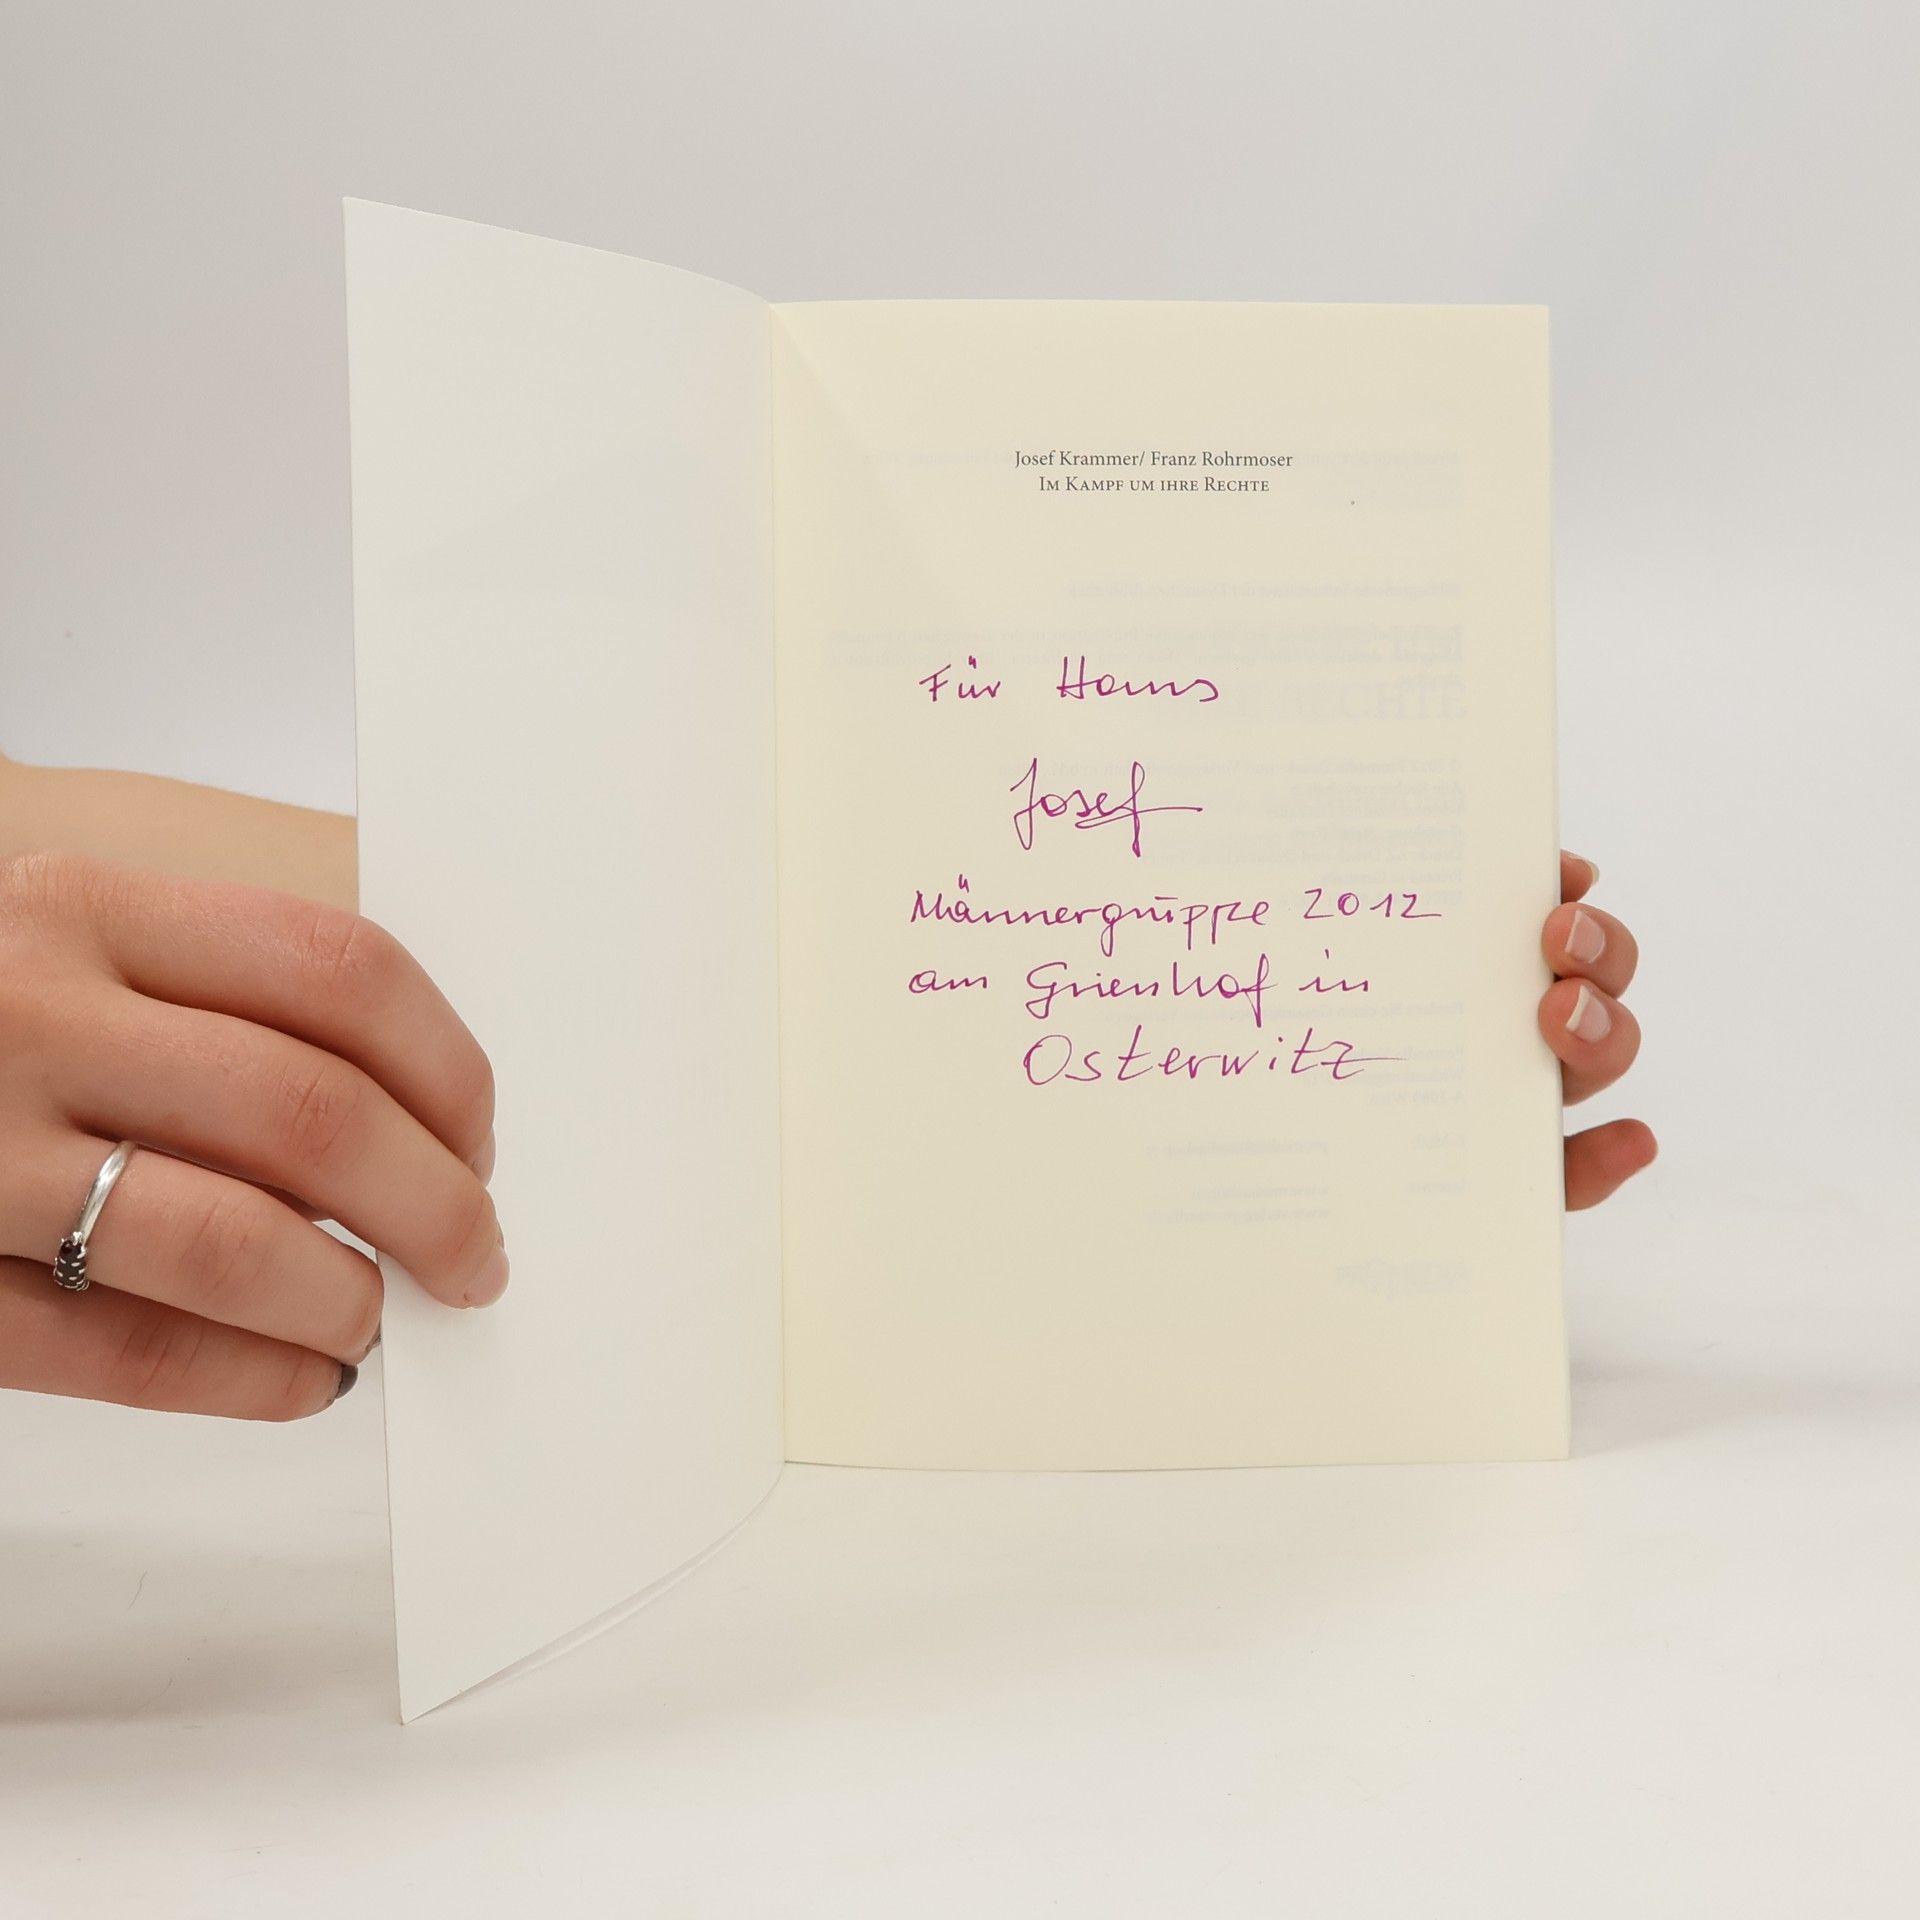 Josef Krammer/ Franz Rohrmoser
IM KAMPF UM IHRE RECHTE
Für Hans
Josef
Männergruppe 2012
am Grienhof in
Osterwitz